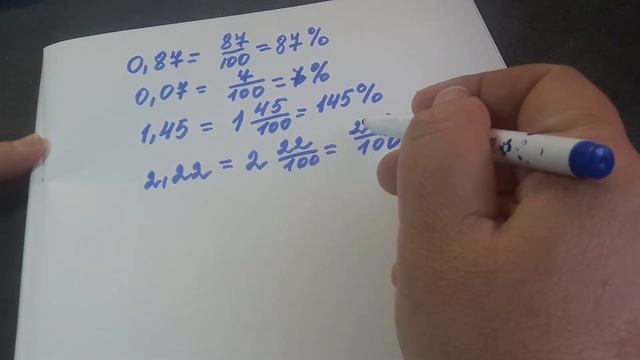 0,87 = 87/100 = 87%
0,07 = 7/100 = 7%
1,45 = 1 45/100 = 145%
2,22 = 2 22/100 = /100